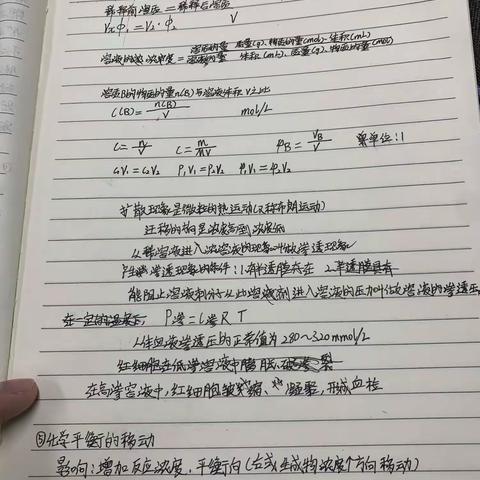 稀释前溶质=稀释后溶质
V
V₁·φ₁=V₂·φ₂
溶液的浓度=溶质的量 质量(g)、物质的量(mol)、体积(mL)
溶液的量 体积(mL)、质量(g)、物质的量(mol)
溶质B的物质的量n(B)与溶液体积V之比
C(B)=n(B)/V mol/L
C=n/V C=m/MV φB=VB/V 单位:1
C₁V₁=C₂V₂ ρ₁V₁=ρ₂V₂ φ₁V₁=φ₂V₂
扩散现象是微粒的热运动(又称布朗运动)
迁移的方向是浓度高到浓度低
从稀溶液进入浓溶液的现象叫做渗透现象
产生渗透现象的条件:1.有半透膜存在 2.半透膜具有
能阻止溶液剂分从此溶液剂进入溶液的压力叫做溶液的渗透压
在一定的温度下, P渗=C渗RT
人体血液渗透压的正常值为280~320mmol/L
红细胞在低渗溶液中膨胀、破裂
在高渗溶液中,红细胞皱缩、凝聚,形成血栓
⑤化学平衡的移动
影响:增加反应浓度,平衡向(方式生成物浓度个方向移动)